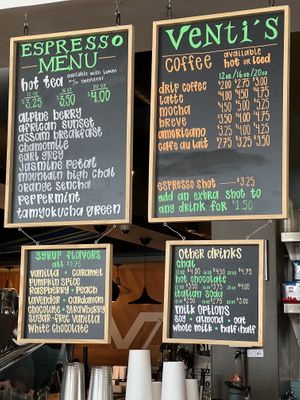 ESPRESSO
MENU
hot tea available with lemon
or sweetener
12 oz 16 oz 20 oz
$3.25 $3.50 $4.00
alpine berry
african sunset
assam breakfast
chamomile
earl grey
Jasmine petal
mountain high chai
orange sencha
peppermint
tamyokucha green
Venti's
Coffee available
hot or iced
12 oz/16 oz/20 oz
drip coffee $2.00 $2.75 $3.00
latte
mocha
breve
americano
cafe au lait $2.75 $3.25 $3.50
espresso shot $3.25
add an extra shot to
any drink for $1.50
Syrup flavors
all $0.75
vanilla • caramel
pumpkin spice
raspberry • peach
lavender • cardamom
chocolate • strawberry
sugar-free vanilla
white chocolate
Other drinks
chai
hot chocolate
italian soda
milk options
soy • almond • oat
whole milk • half & half